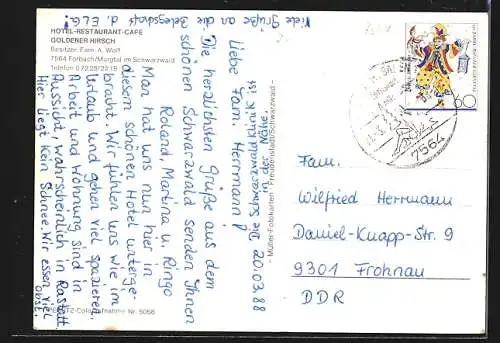 HOTEL-RESTAURANT-CAFE
GOLDENER HIRSCH
Besitzer: Fam. A. Wolf
7564 Forbach/Murgtal im Schwarzwald
Telefon 07228/2218
Viele Grüße an die
Belegschaft
d. ELG!
20.03.88
Liebe Fam. Herrmann!
Die Schwarzwaldklinik ist
in der Nähe.
Die herzlichsten Grüße aus dem
schönen Schwarzwald senden Ihnen
Roland, Martina u. Ringo
Man hat uns nun hier in
diesem schönen Hotel unterge-
bracht. Wir fühlen uns wie im
Urlaub und gehen viel spazieren.
Arbeit und Wohnung sind in
Aussicht, wahrscheinlich in Rastatt.
Hier liegt kein Schnee. Wir essen viel
obst.
Müller-Fotokarten - Freudenstadt/Schwarzwald
60
7564
Fam.
Wilfried Herrmann
Daniel-Knapp-Str. 9
9301 Frohnau
DDR